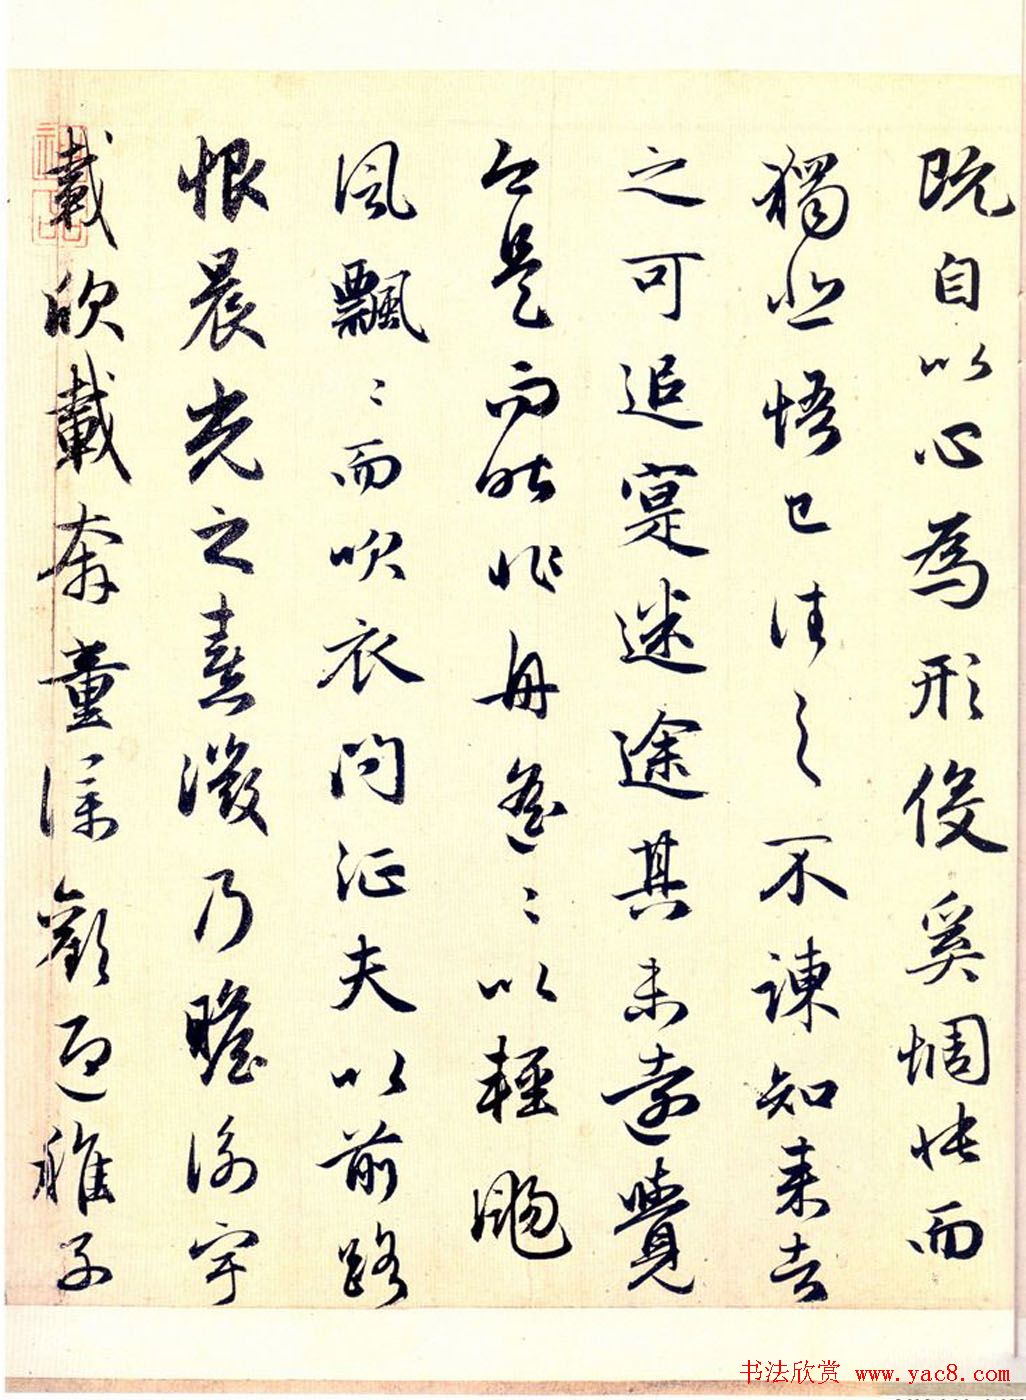 既自以心為形役奚惆悵而
獨悲悟已往之不諫知來者
之可追寔迷途其未遠覺
今是而昨非舟遙〻以輕颺
風飄〻而吹衣問征夫以前路
恨晨光之熹微乃瞻衡宇
載欣載奔童僕歡迎稚子
书法欣赏 www.yac8.com